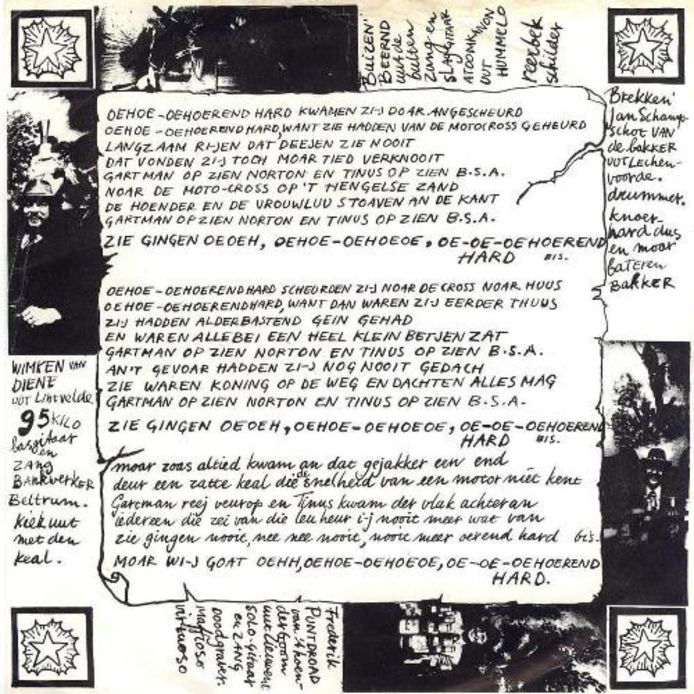 Buizen'
BEERND
uut de
bulten
zang en
SLAGGITAAR
ATOOMKANON
UUT
HUMMELO
reerbek
schilder
Brekken'
Jan Schamp-
schot VAN
de bakker
UUT Lechen-
voorde.
drummer.
knoer-
hard dus
en moar
bateren
BAKKER
OEHOE-OEHOEREND HARD KWAMEN ZIJ DOAR ANGESCHEURD
OEHOE-OEHOEREND HARD, WANT ZIE HADDEN VAN DE MOTOCROSS GEHEURD
LANGZAAM RIJEN DAT DEEJEN ZIE NOOIT
DAT VONDEN ZIJ TOCH MOAR TIED VERKNOOIT
GARTMAN OP ZIEN NORTON EN TINUS OP ZIEN B.S.A.
NOAR DE MOTO-CROSS OP 'T HENGELSE ZAND
DE HOENDER EN DE VROUWLUU STOAVEN AN DE KANT
GARTMAN OP ZIEN NORTON EN TINUS OP ZIEN B.S.A.
ZIE GINGEN OEOEH, OEHOE-OEHOEOE, OE-OE-OEHOEREND
HARD BIS.
OEHOE-OEHOEREND HARD SCHEURDEN ZIJ NOAR DE CROSS NOAR HUUS
OEHOE-OEHOERENDHARD, WANT DAN WAREN ZIJ EERDER THUUS
ZIJ HADDEN ALDERBASTEND GEIN GEHAD
EN WAREN ALLEBEI EEN HEEL KLEIN BETJEN ZAT
GARTMAN OP ZIEN NORTON EN TINUS OP ZIEN B.S.A.
AN'T GEVOAR HADDEN ZIJ NOG NOOIT GEDACH
ZIE WAREN KONING OP DE WEG EN DACHTEN ALLES MAG
GARTMAN OP ZIEN NORTON EN TINUS OP ZIEN B.S.A.
ZIE GINGEN OEOEH, OEHOE-OEHOEOE, OE-OE-OEHOEREND
HARD BIS.
moar zoas altied kwam an dat gejakker een end
deur een zatte keal die de snelheid van een motor niet kent
Gartman reej veurop en Tinus kwam der vlak achteran
iedereen die zei van die leu heur i-j nooit meer wat van
zie gingen nooit, nee nee nooit, nooit meer oerend hard bis.
MOAR WI-J GOAT OEHH, OEHOE-OEHOEOE, OE-OE-OEHOEREND
HARD.
WIMKEN VAN
DIENE
UUT Lintvelde
95 KILO
basgitaar
en
ZANG
BANKWERKER
Beltrum.
kiek uut
met den
keal.
Frederik
PUNTDROAD
van 't hoen-
derboom
uut Lieveveld
solo-gitaar
en ZANG
doodgraver.
maffioso
virtuoso